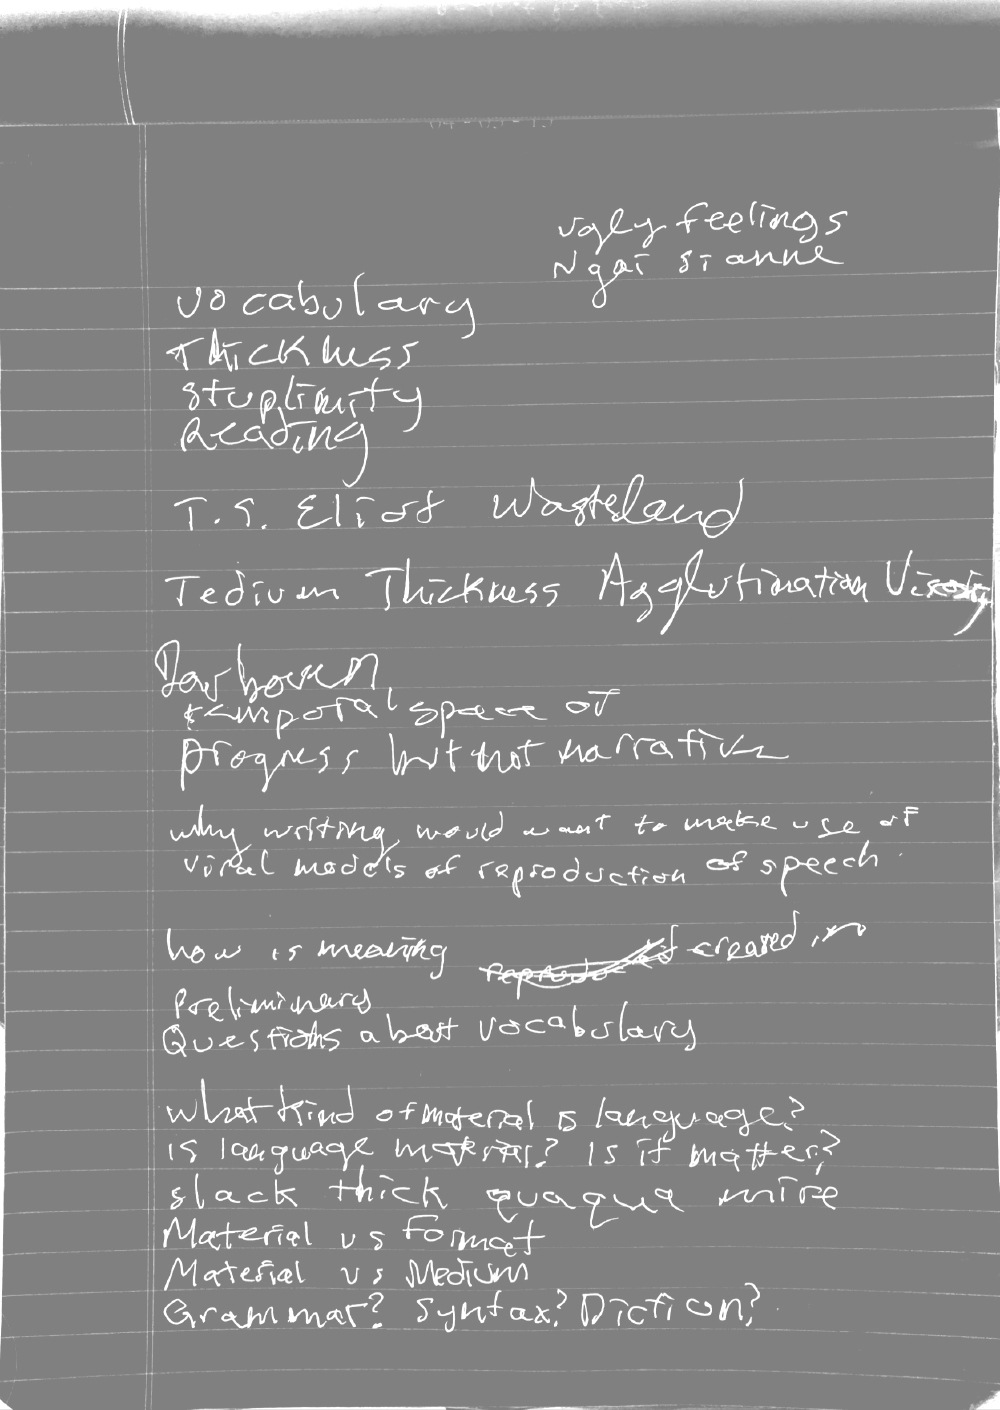 Ugly feelings
Ngai Sianne
Vocabulary
Thickness
Stuplimity
Reading
T.S. Eliot Wasteland
Tedium Thickness Agglutination Viscosity
Darboven
temporal space of
progress but not narrative
why writing would want to make use of
viral models of reproduction of speech.
how is meaning created in
Preliminary
Questions about vocabulary
what kind of material is language?
is language material? Is it matter?
slack thick quaqua mire
Material vs format
Material vs Medium
Grammar? Syntax? Diction?